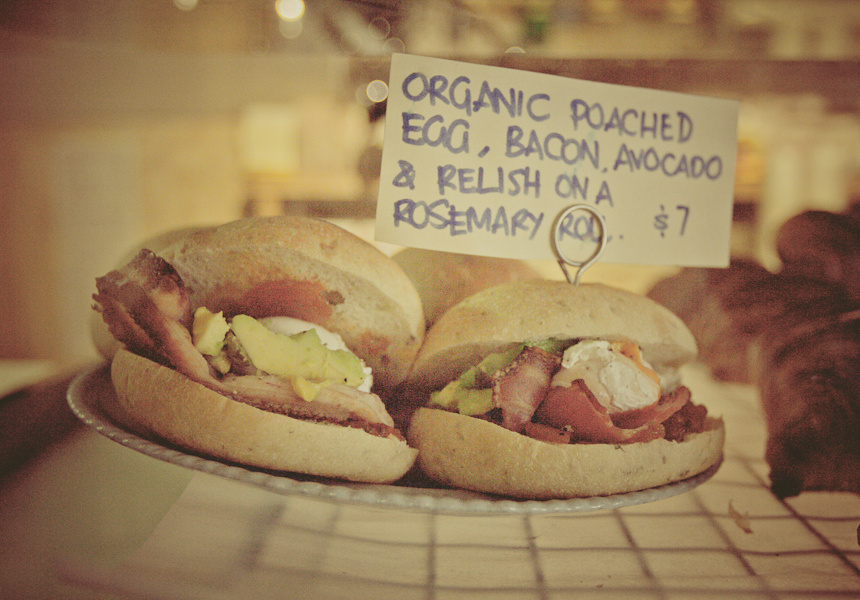 ORGANIC POACHED
EGG, BACON, AVOCADO
& RELISH ON A
ROSEMARY ROLL.. $7